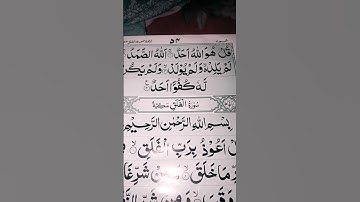 ٥٣
قُلْ هُوَ اللّٰهُ اَحَدٌ ۚ اَللّٰهُ الصَّمَدُ
لَمْ يَلِدْ ۙ وَلَمْ يُوْلَدْ ۙ وَلَمْ يَكُ
لَّهٗ كُفُوًا اَحَدٌ
سُوْرَةُ الْفَلَقِ مَكِّيَّةٌ
بِسْمِ اللّٰهِ الرَّحْمٰنِ الرَّحِيْمِ
اَعُوْذُ بِرَبِّ الْفَلَقِ
مَا خَلَقَ ۙ وَمِنْ شَرِّ غَا
وَمِنْ شَرِّ